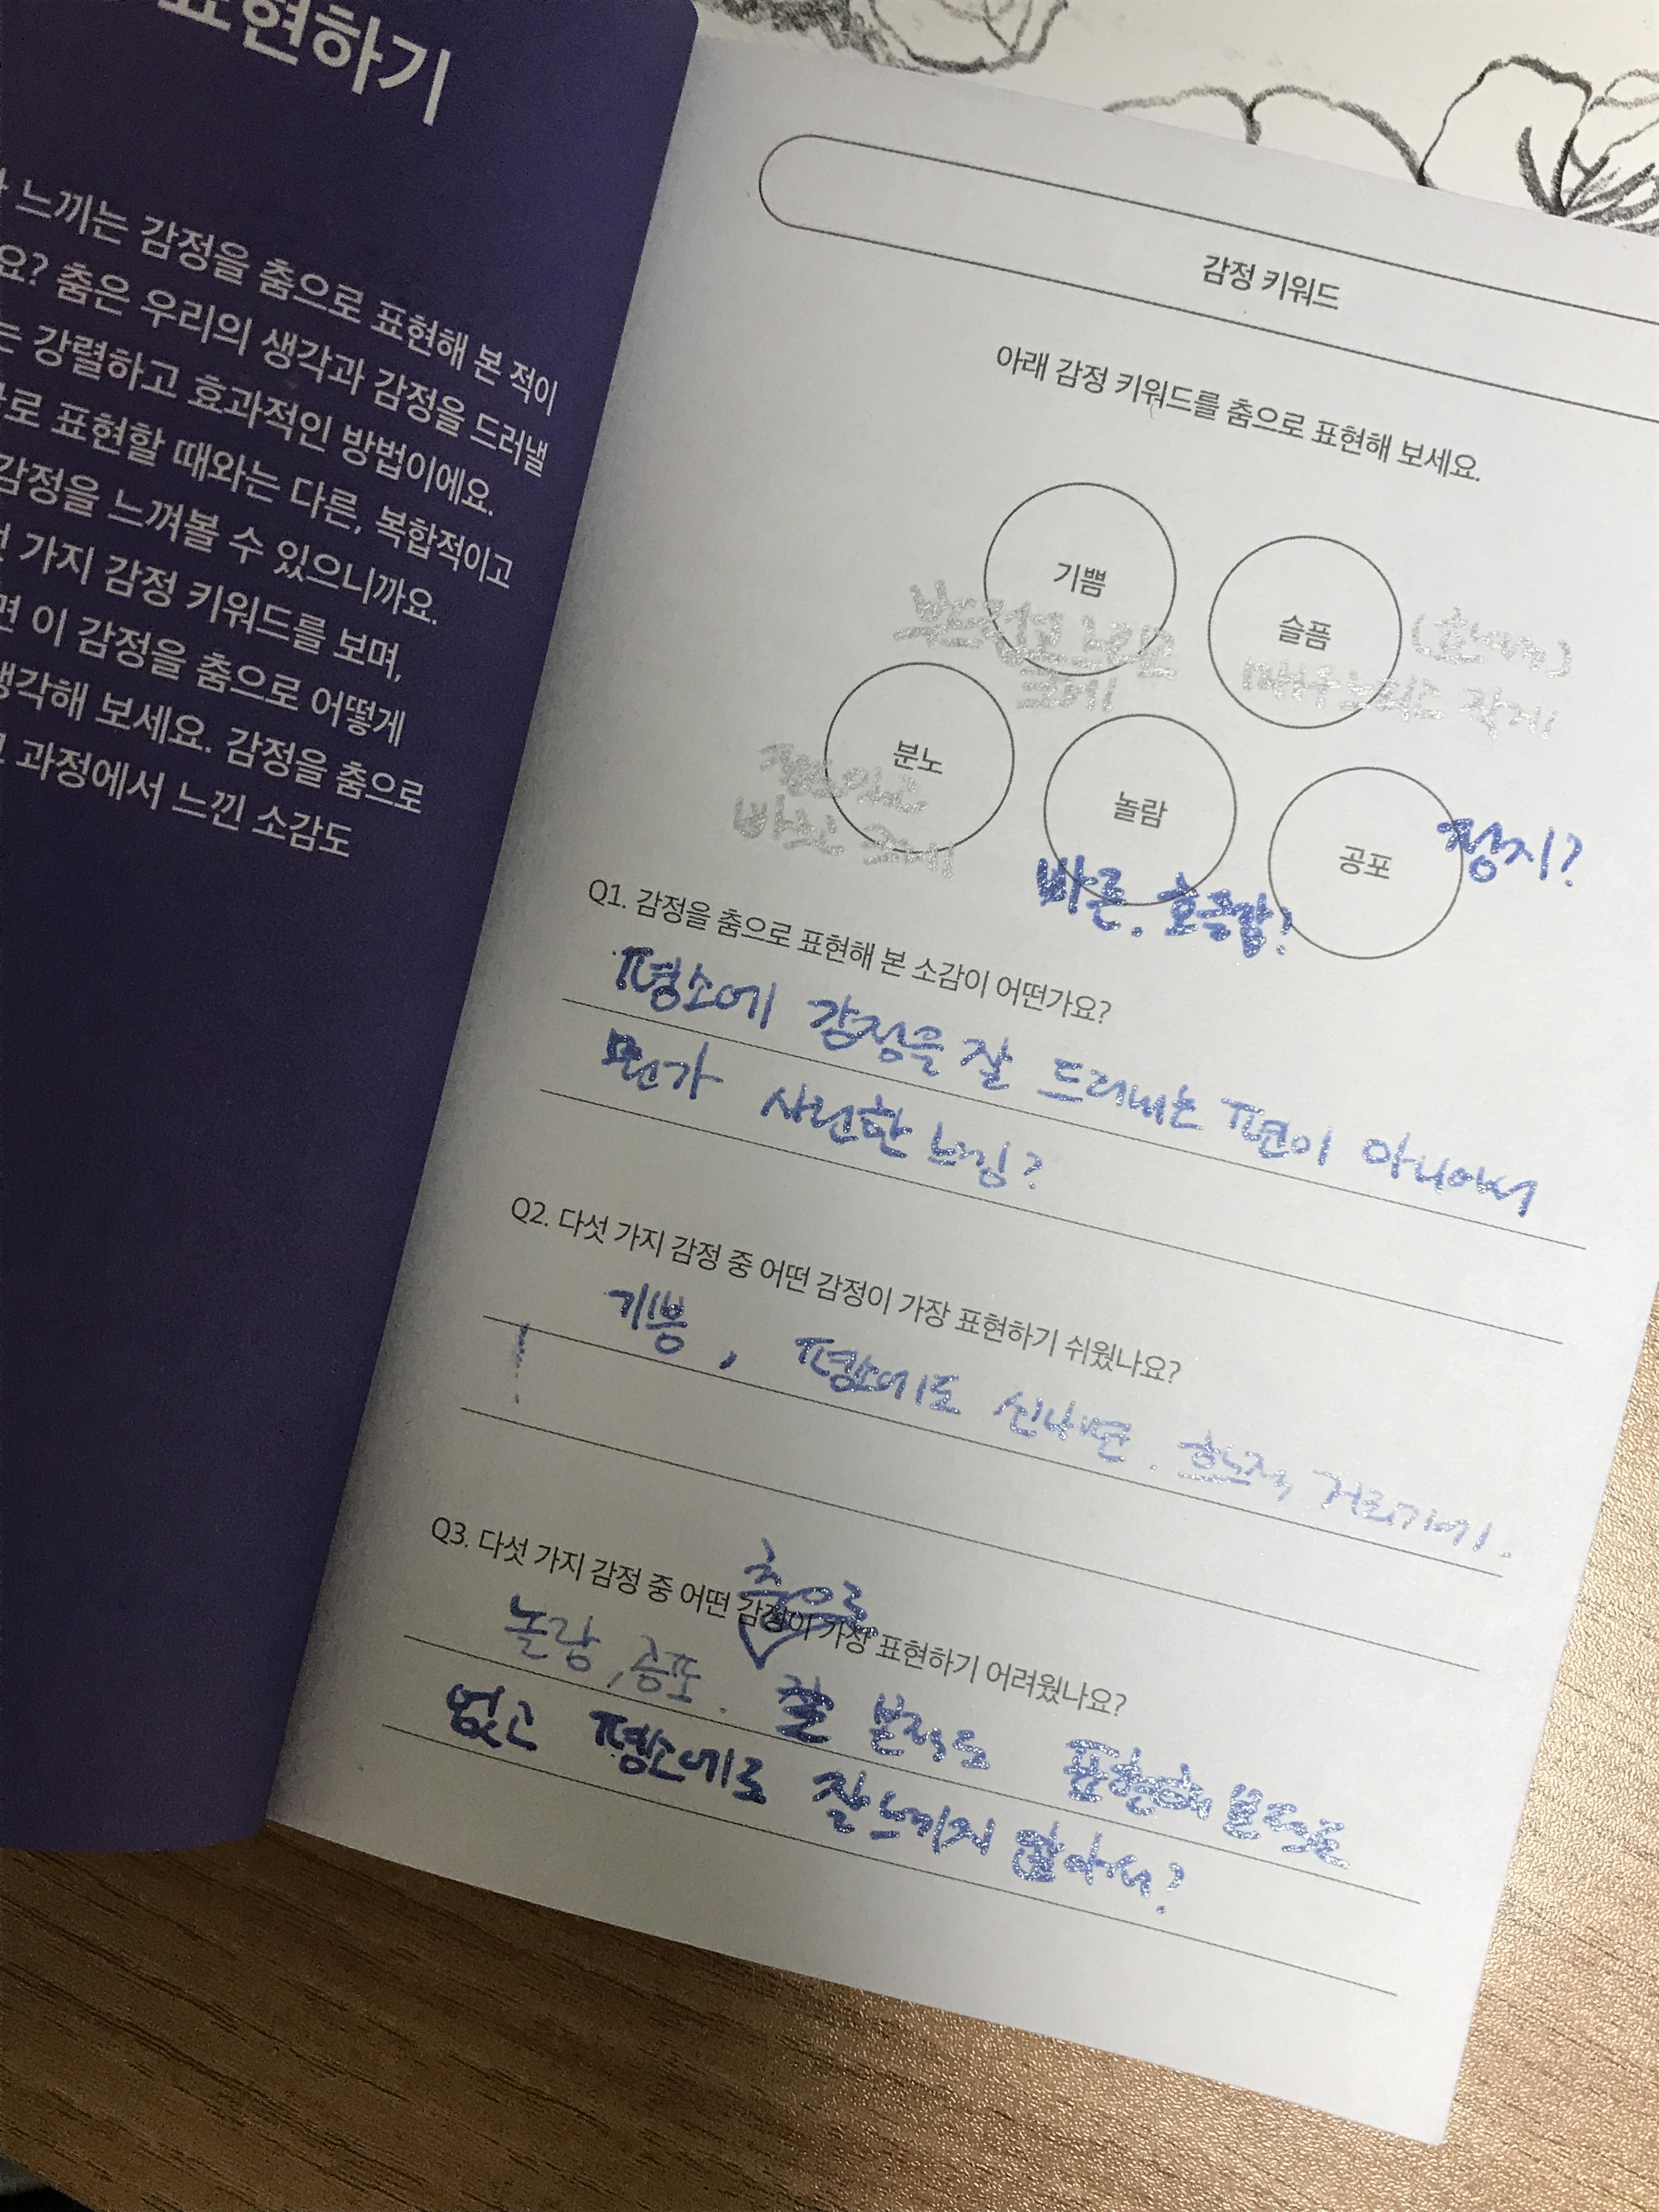 표현하기
느끼는 감정을 춤으로 표현해 본 적이
요? 춤은 우리의 생각과 감정을 드러낼
는 강렬하고 효과적인 방법이에요.
로 표현할 때와는 다른, 복합적이고
감정을 느껴볼 수 있으니까요.
가지 감정 키워드를 보며,
면 이 감정을 춤으로 어떻게
생각해 보세요. 감정을 춤으로
과정에서 느낀 소감도
감정 키워드
아래 감정 키워드를 춤으로 표현해 보세요.
기쁨
슬픔
부드럽고 느리고
크게
매우 느리고 작게
분노
놀람
공포
정지?
힘있고
빠르고 크게
빠른. 호흡할!
Q1. 감정을 춤으로 표현해 본 소감이 어떤가요?
평소에 감정을 잘 드러내는 편이 아니어서
뭔가 시원한 느낌?
Q2. 다섯 가지 감정 중 어떤 감정이 가장 표현하기 쉬웠나요?
기쁨, 평소에도 신나면. 흔적, 거리기에.
Q3. 다섯 가지 감정 중 어떤 감정이 가장 표현하기 어려웠나요?
춤으로
놀람, 공포. 잘 본적도 표현해본적도
없고 평소에도 잘 느끼지 않아서?